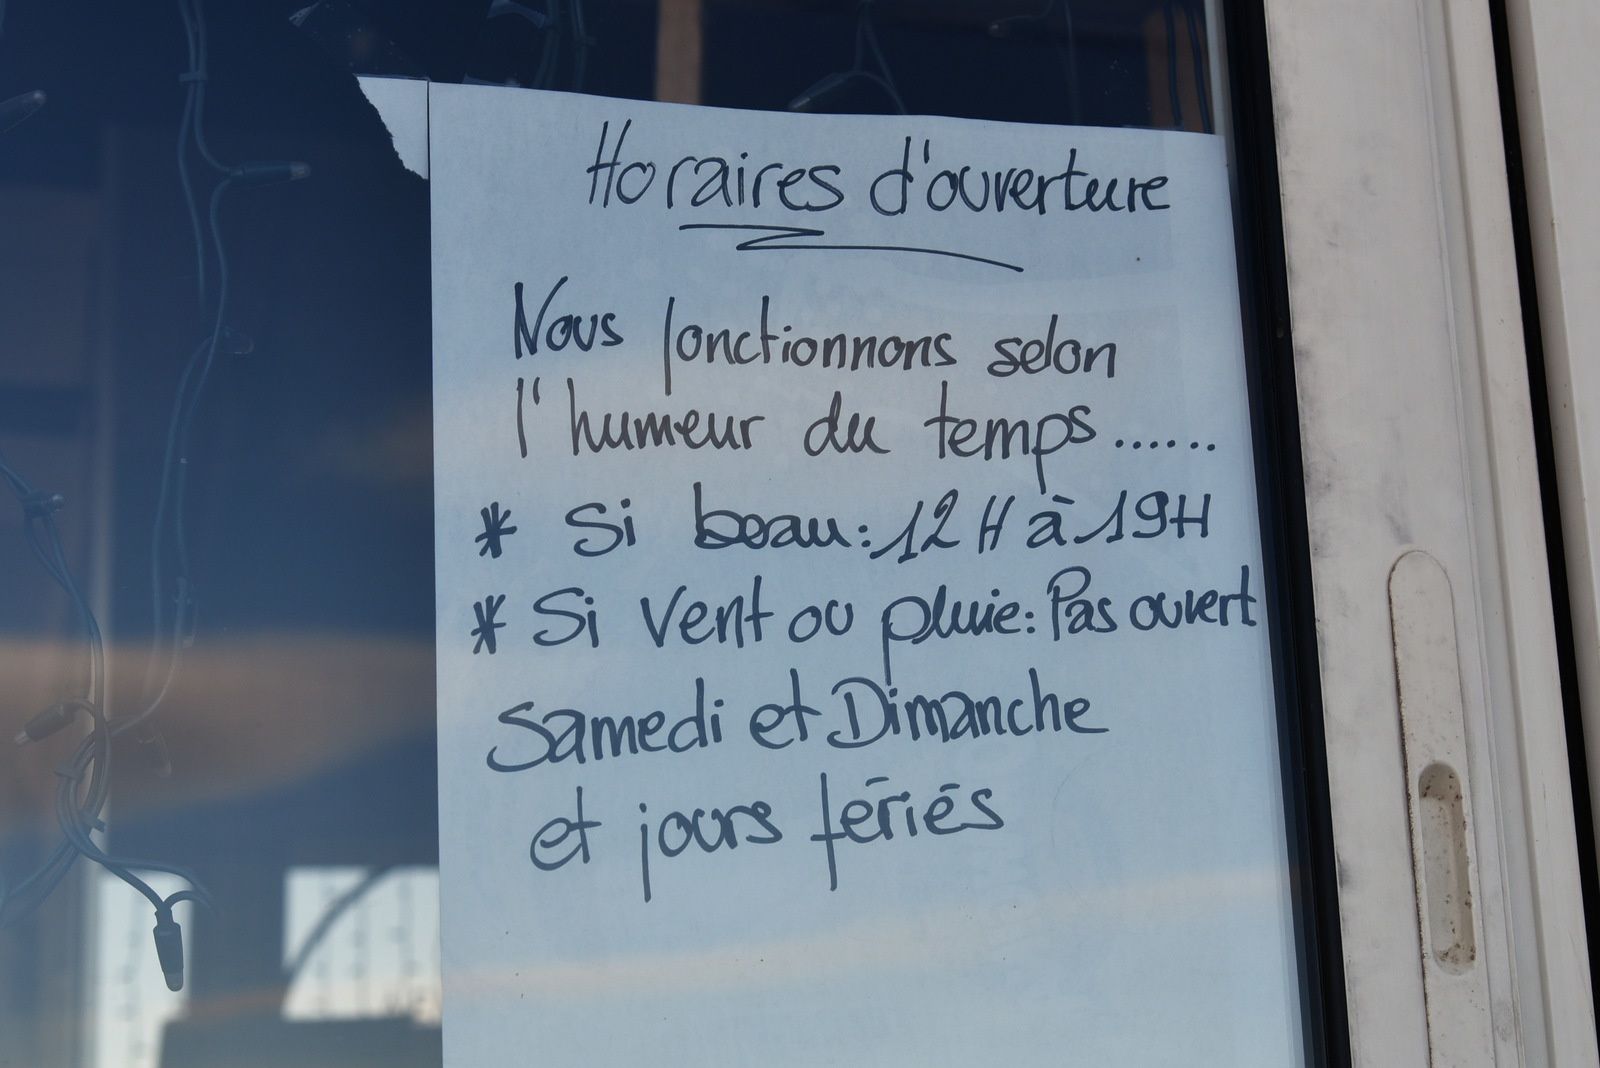 Horaires d'ouverture
Nous fonctionnons selon
l'humeur du temps......
* Si beau : 12H à 19H
* Si vent ou pluie : Pas ouvert
Samedi et Dimanche
et jours fériés